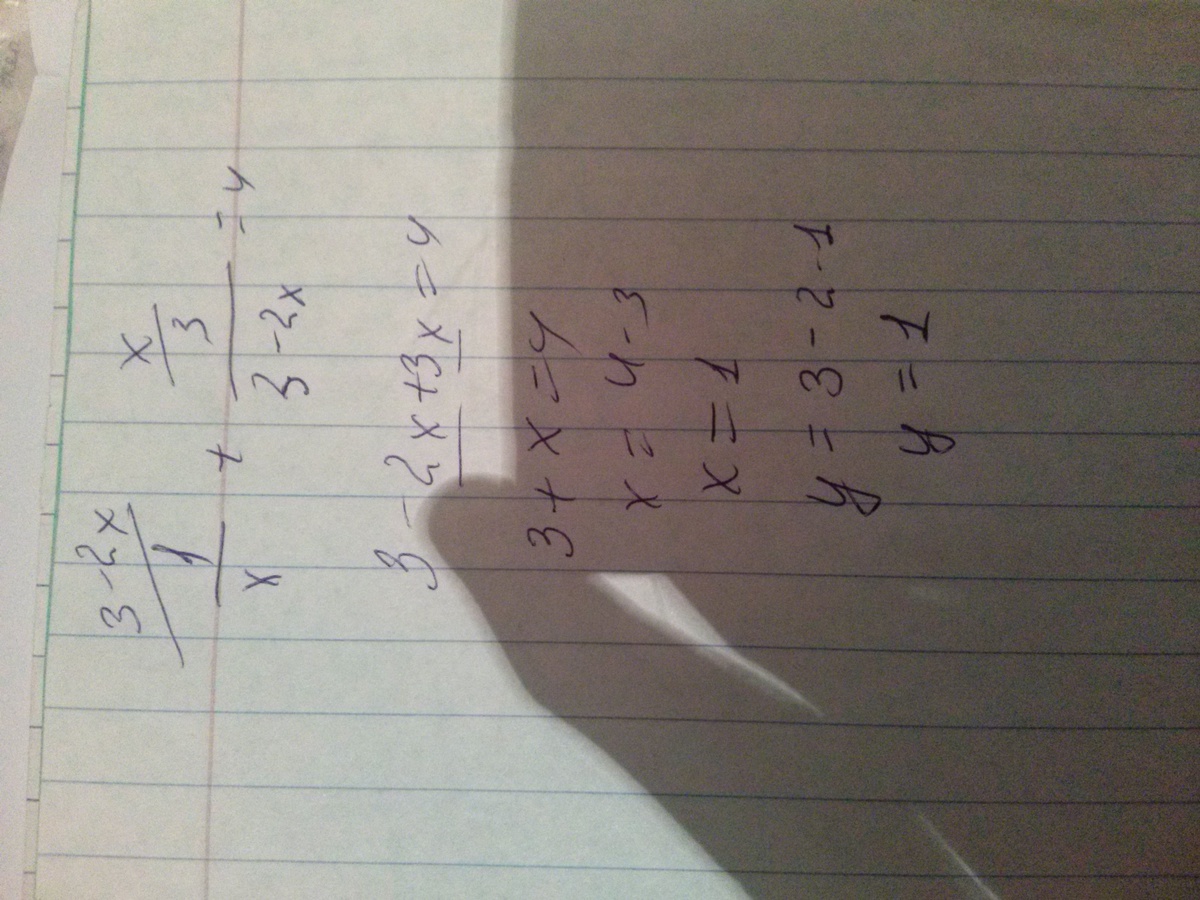 3-2x x
1 + 3 = 4
x 3-2x
3-2x+3x=4
3+x=4
x=4-3
x=1
y=3-2·1
y=1